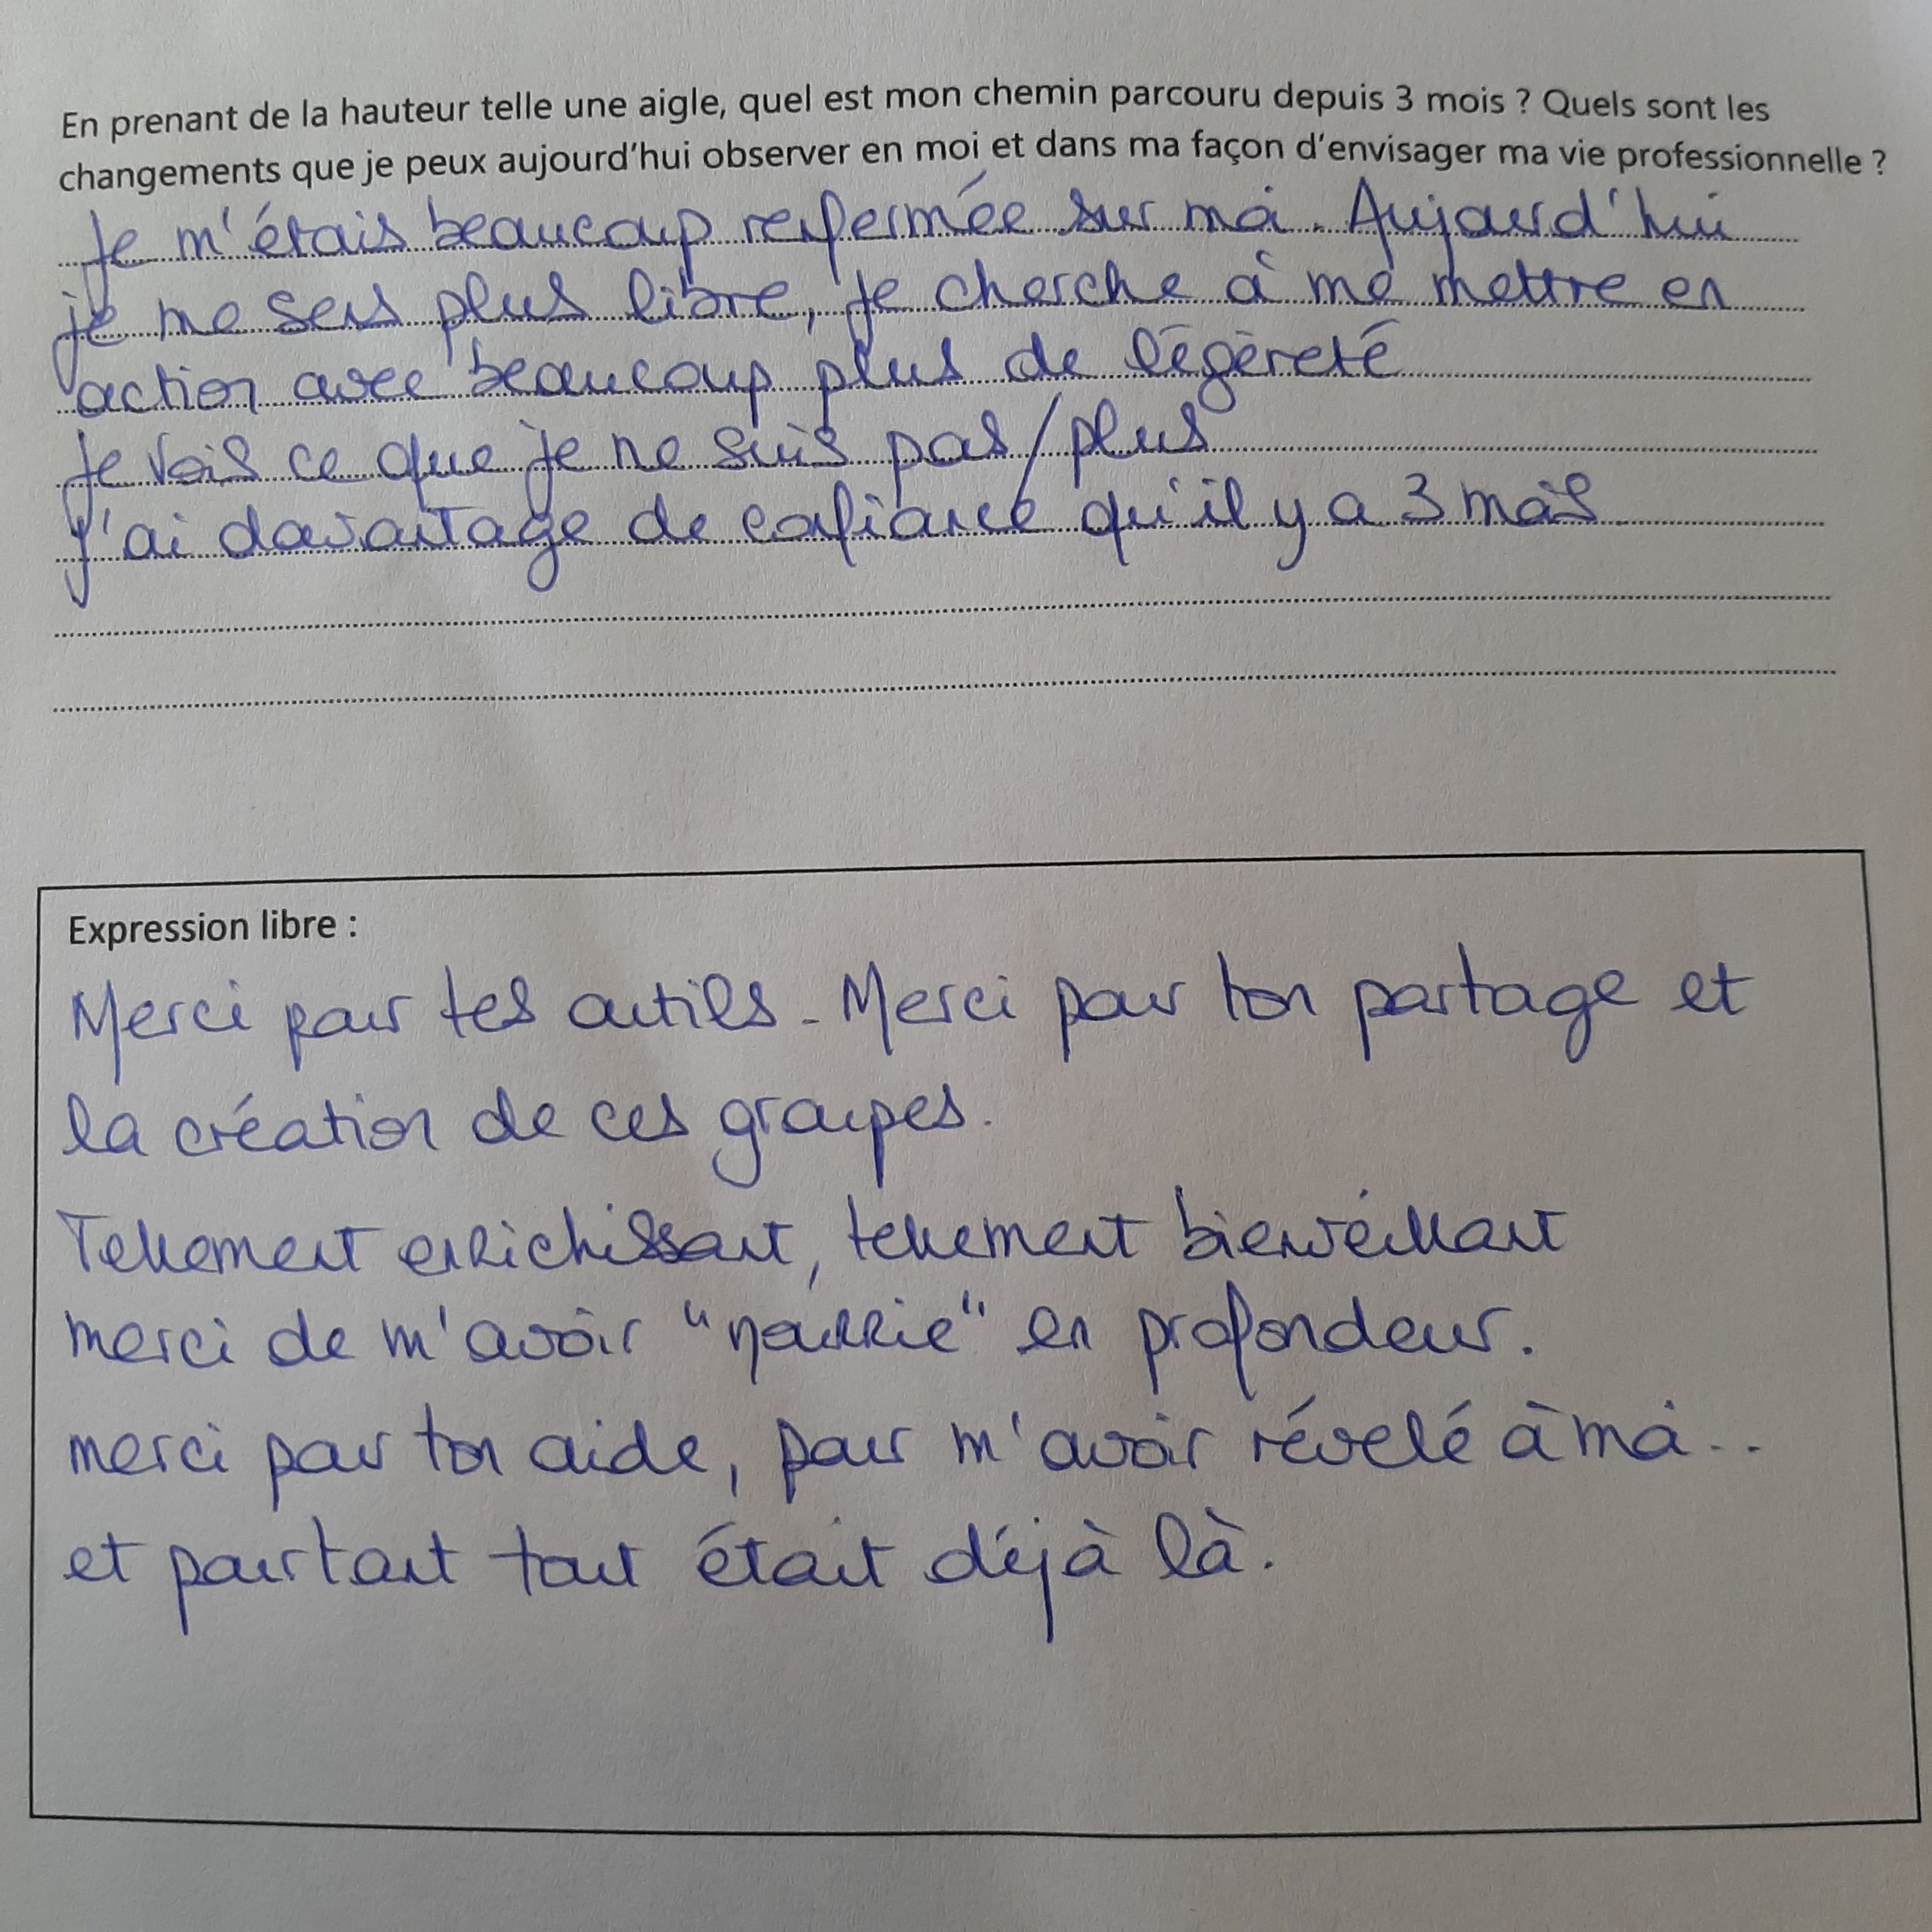 En prenant de la hauteur telle une aigle, quel est mon chemin parcouru depuis 3 mois ? Quels sont les
changements que je peux aujourd'hui observer en moi et dans ma façon d'envisager ma vie professionnelle ?
Je m'étais beaucoup renfermée sur moi. Aujourd'hui
je me sens plus libre, je cherche à me mettre en
action avec beaucoup plus de légèreté
Je vois ce que je ne suis pas/plus
J'ai davantage de confiance qu'il y a 3 mois
Expression libre :
Merci pour tes outils - Merci pour ton partage et
la création de ces groupes.
Tellement enrichissant, tellement bienveillant
merci de m'avoir "nourrie" en profondeur.
merci pour ton aide, pour m'avoir révélé à moi..
et pourtant tout était déjà là.